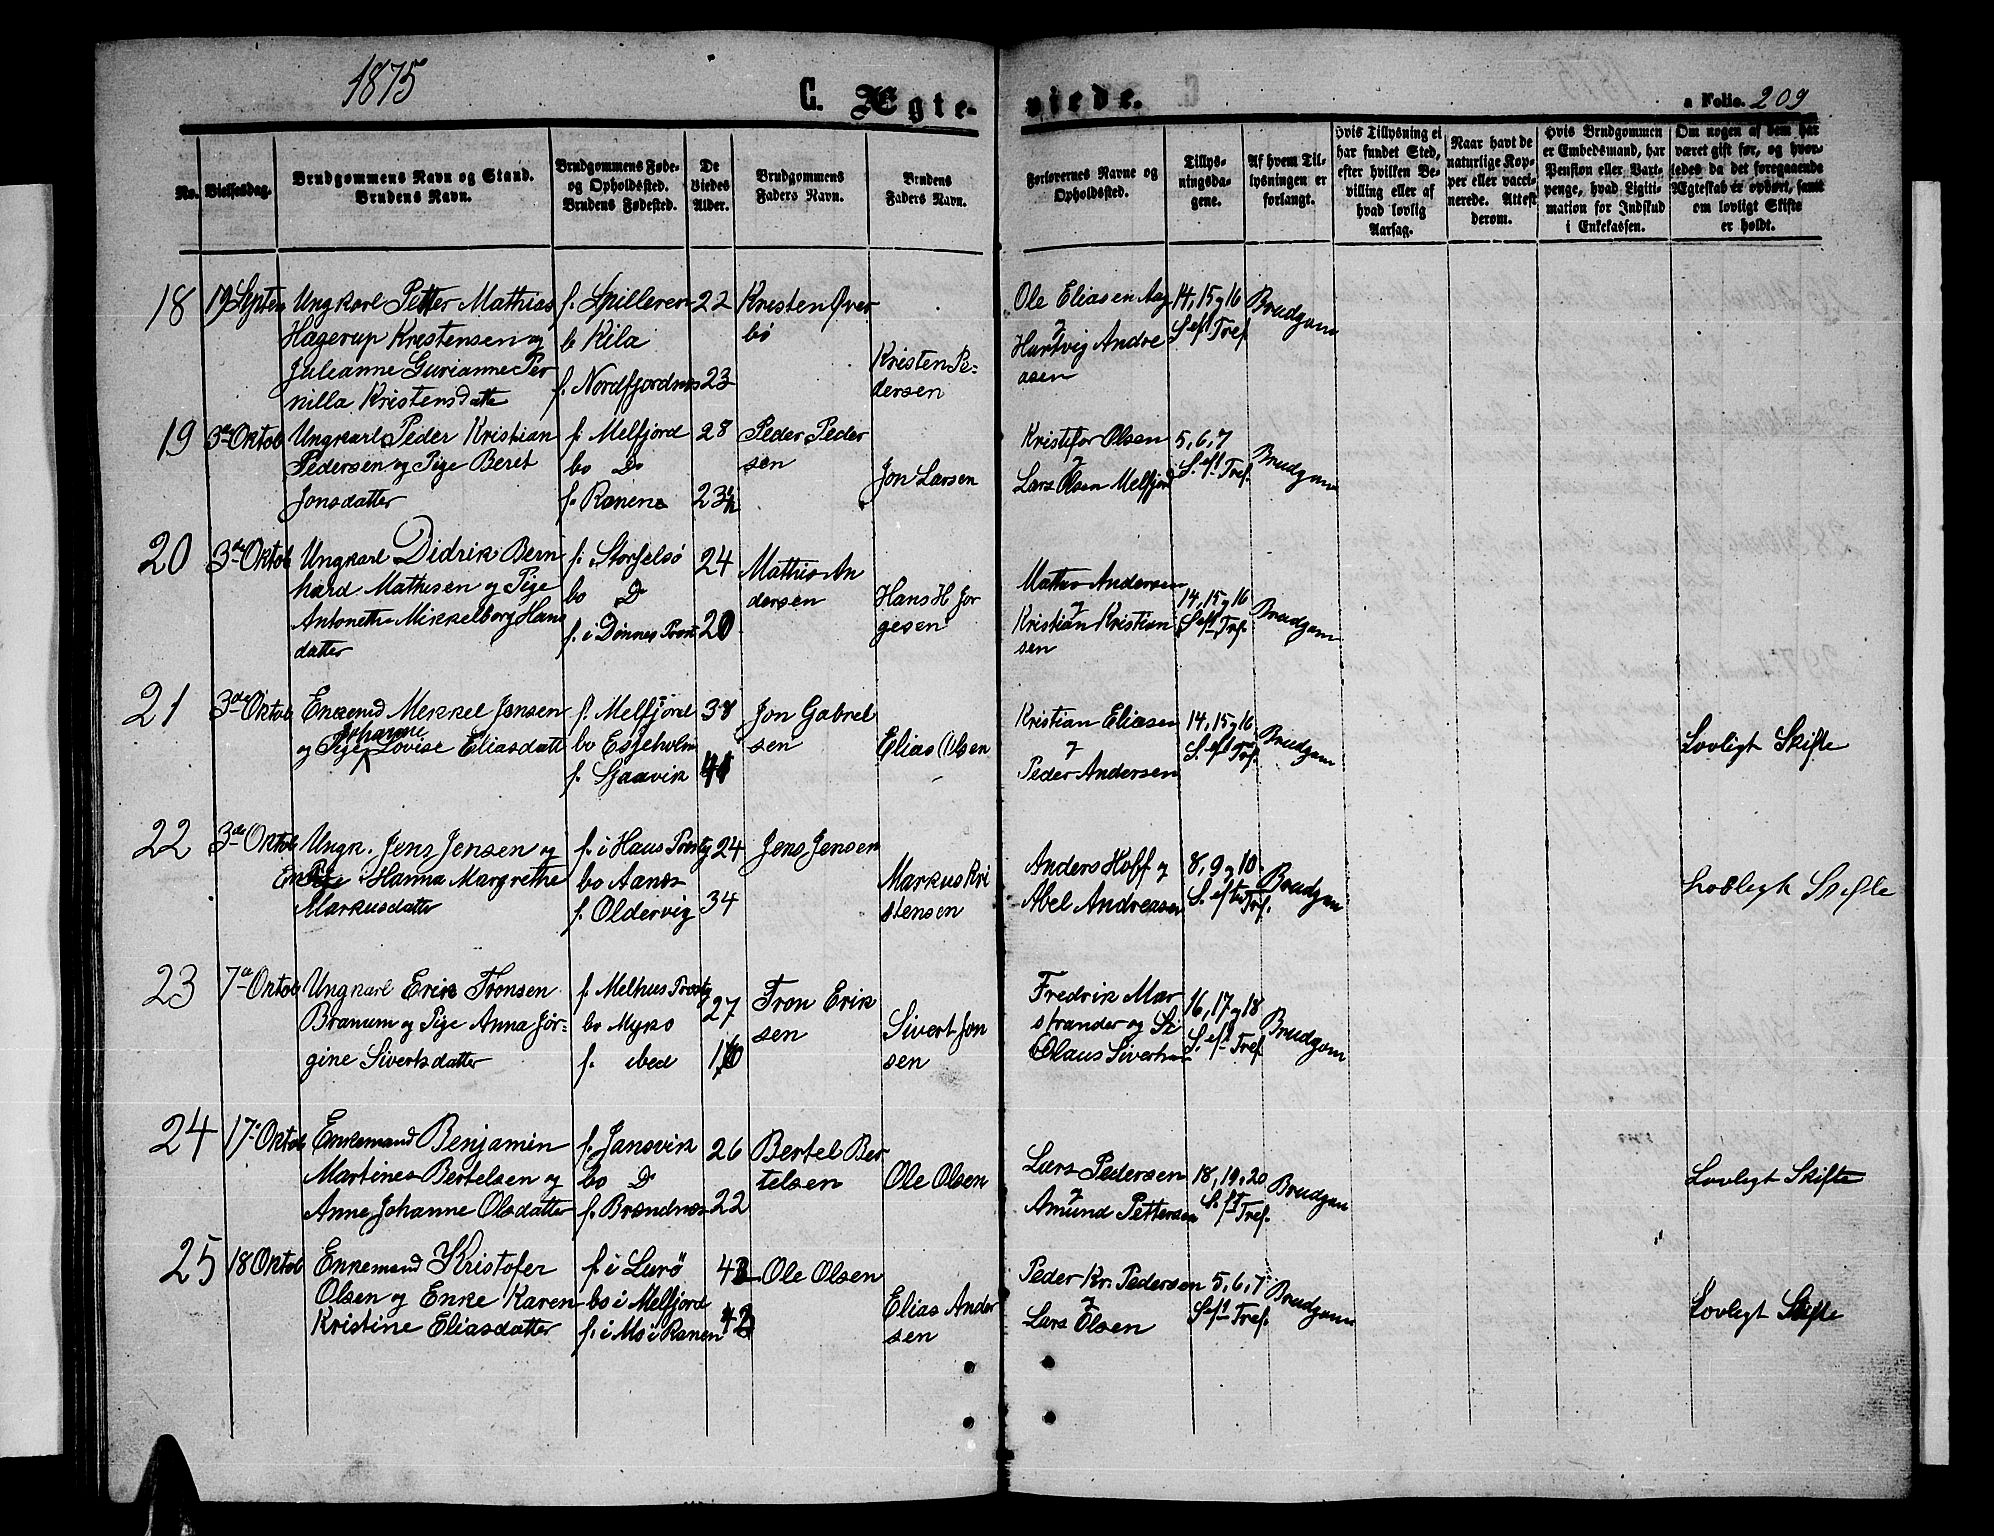 1875
C. Ægteviede.
a Folio. 209
No.
Vielsesdag.
Brudgommens Navn og Stand.
Brudens Navn.
Brudgommens Føde-
og Opholdssted.
Brudens Fødested.
De
Viedes
Alder.
Brudgommens
Faders Navn.
Brudens
Faders Navn.
Forlovernes Navne og
Opholdssted.
Tillys-
ningsda-
gene.
Af hvem Til-
lysningen er
forlangt.
Hvis Tillysning ei
har fundet Sted,
efter hvilken Be-
villing eller af
hvad lovlig
Aarsag.
Naar havt de
naturlige Kop-
per eller vacci-
nerede. Attest
derom.
Hvis Brudgommen
er Embedsmand, har
Pension eller Vart-
penge, hvad Ligiti-
mation for Indskud
i Enkekassen.
Om nogen af dem har
været gift før, og hvor-
ledes da det foregaaende
Ægteskab er ophørt, samt
om lovligt Skifte
er holdt.
18
19 Septem
Ungkarl Petter Mathias
Hagerup Kristensen og
Juleanne Gurianne Per
nilla Kristensdatte
f. Spilleren
b Kila
f. Nordfjordnes
22
23
Kristen Øver
bø
Kristen Pe-
dersen
Ole Eliasen Aag
og
Hartvig Andre
asen
14, 15 og 16
S. eft Tref
Brudgom
19
3de Oktob
Ungkarl Peder Kristian
Pedersen og Pige Beret
Jonsdatter
f. Melfjord
bo Do
f. Ranen
28
23½
Peder Peder
sen
Jon Larsen
Kristofor Olsen
og
Lars Olsen Melfjord
5, 6, 7
S. eft Tref.
Brudgom
20
3de Oktob
Ungkarl Didrik Bern
hard Mathisen og Pige
Antonette Mikkelborg Hans
datter
f. Storselsö
bo Do
f. i Dönnes Prest
24
20
Mathis An
dersen
Hans H Jør
gesen
Mathis Andersen
og
Kristian Kristian
sen
14, 15 og 16
S. eft Tref.
Brudgom
21
3de Oktob
Enkemd Mekkel Jonsen
Johanne
og Pige Lovise Eliasdatt
f. Melfjord
bo Esjeholm
f. Sjaavik
38
41
Jon Gabriel
sen
Elias Olsen
Kristian Eliasen
og
Peder Andersen
14, 15 og 16
S. eft Tref.
Brudgom
Lovligt Skifte
22
3de Oktob
Ungk. Jens Jensen og
Enke Hanna Margrethe
Markusdatte
f. i Haus Prestg
bo Aanes
f. Oldervig
24
34
Jens Jensen
Markus Kri
stensen
Anders Hoff og
Abel Andreasen
8, 9 og 10
S. eft Tref.
Brudgom
Lovligt Skifte
23
7de Oktob
Ungkarl Erik Tronsen
Bramem og Pige Anna Jør-
gine Sivertsdatter
f. Melhus Prestg
bo Myko
f. ibed
27
Tron Erik
sen
Sivert Jon
sen
Fredrik Mar
strander og Si
Olaus Sivertsen
16, 17 og 18
S. eft Tref
Brudgom
24
17de Oktob
Enkemand Benjamin
Martines Bertelsen og
Anne Johanne Olsdatter
f. Jansvik
bo Do
f. Brændnes
26
22
Bertel Ber
telsen
Ole Olsen
Lars Pedersen
og
Amund Pettersen
18, 19, 20
S. eft Tref.
Brudgom
Lovligt Skifte
25
18 Oktob
Enkemand Kristofer
Olsen og Enke Karen
Kristine Eliasdatter
f. i Lurö
bo i Melfjord
f. i Mo i Ranen
43
42
Ole Olsen
Elias Ander
sen
Peder Kr. Pedersen
og
Lars Olsen
5, 6, 7
S. eft Tref.
Brudgom
Lovligt Skifte